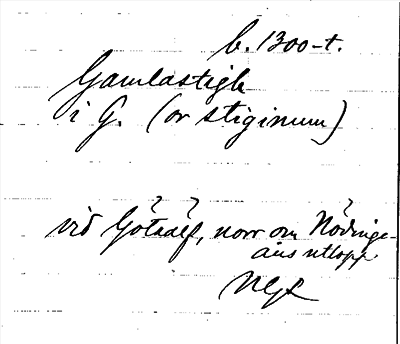 b. 1300-t.
Gamlastigh
i G. (or stiginum)
vid Götaälf, norr om Nödinge-
åns utlopp.